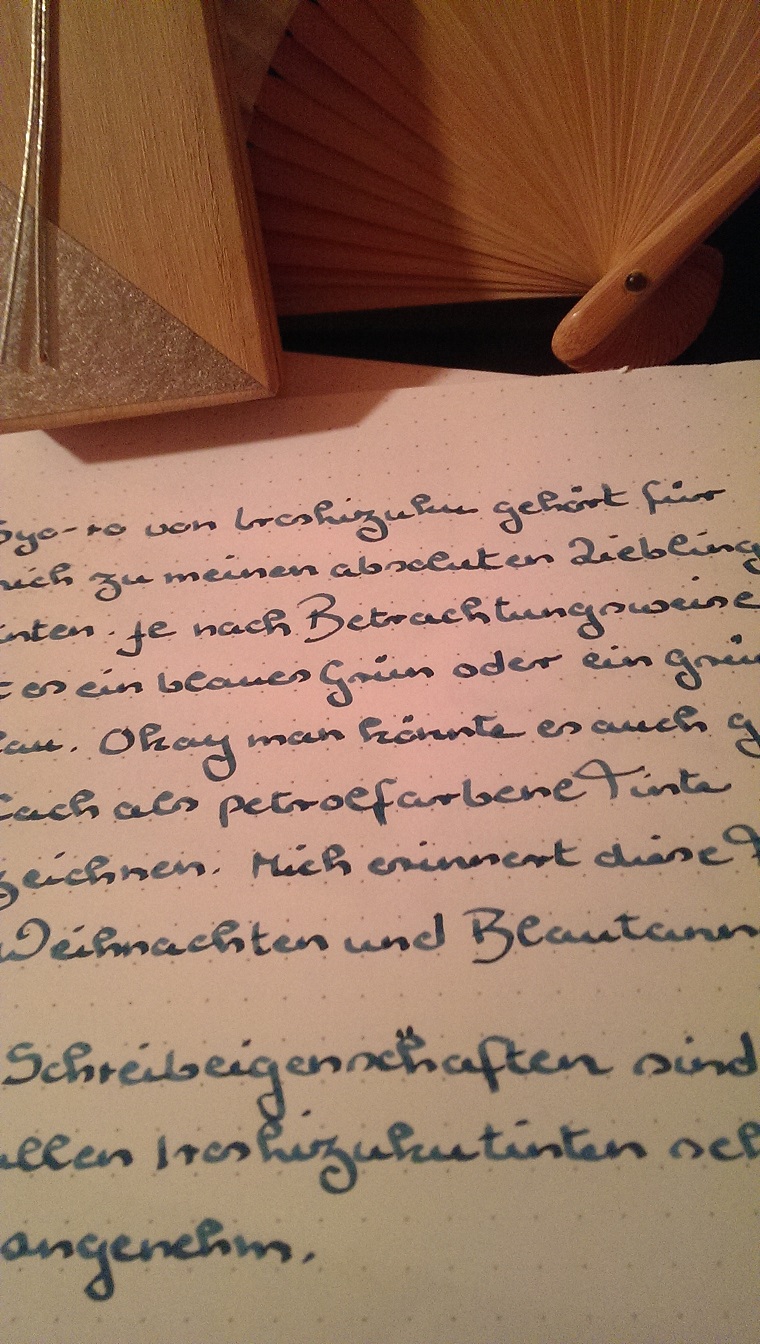 Syo-ro von Iroshizuku gehört für
mich zu meinen absoluten Liebling
inten. Je nach Betrachtungsweise
t es ein blaues Grün oder ein grü
lau. Okay man könnte es auch g
fach als petrolfarbene Tinte
zeichnen. Mich erinnert diese T
Weihnachten und Blautann
Schreibeigenschaften sind
allen Iroshizukutinten seh
angenehm.